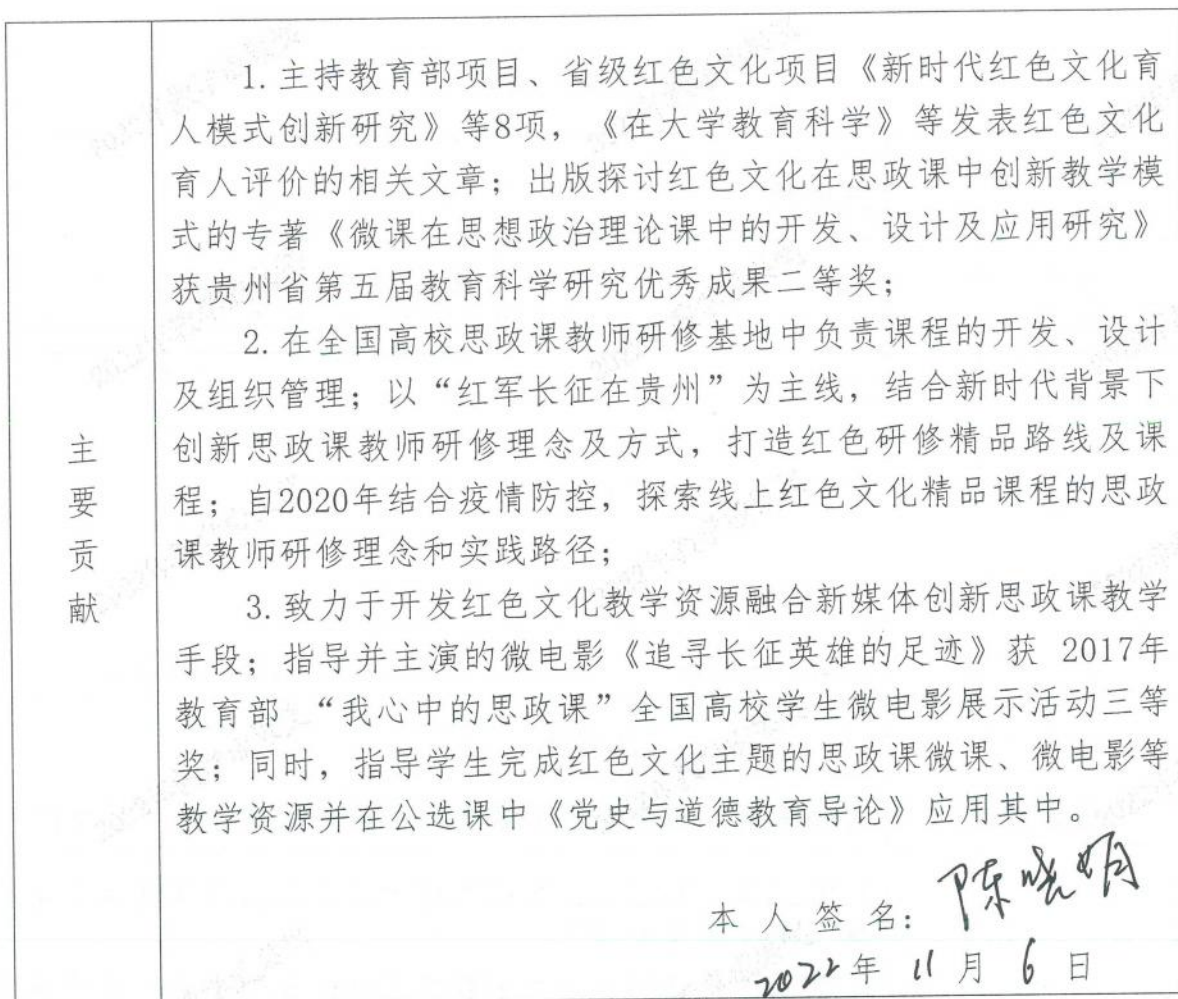 主要贡献
1.主持教育部项目、省级红色文化项目《新时代红色文化育
人模式创新研究》等8项，《在大学教育科学》等发表红色文化
育人评价的相关文章；出版探讨红色文化在思政课中创新教学模
式的专著《微课在思想政治理论课中的开发、设计及应用研究》
获贵州省第五届教育科学研究优秀成果二等奖；
2.在全国高校思政课教师研修基地中负责课程的开发、设计
及组织管理；以“红军长征在贵州”为主线，结合新时代背景下
创新思政课教师研修理念及方式，打造红色研修精品路线及课
程；自2020年结合疫情防控，探索线上红色文化精品课程的思政
课教师研修理念和实践路径；
3.致力于开发红色文化教学资源融合新媒体创新思政课教学
手段；指导并主演的微电影《追寻长征英雄的足迹》获 2017年
教育部 “我心中的思政课”全国高校学生微电影展示活动三等
奖；同时，指导学生完成红色文化主题的思政课微课、微电影等
教学资源并在公选课中《党史与道德教育导论》应用其中。
本人签名：陈晓娟
2022年11月6日